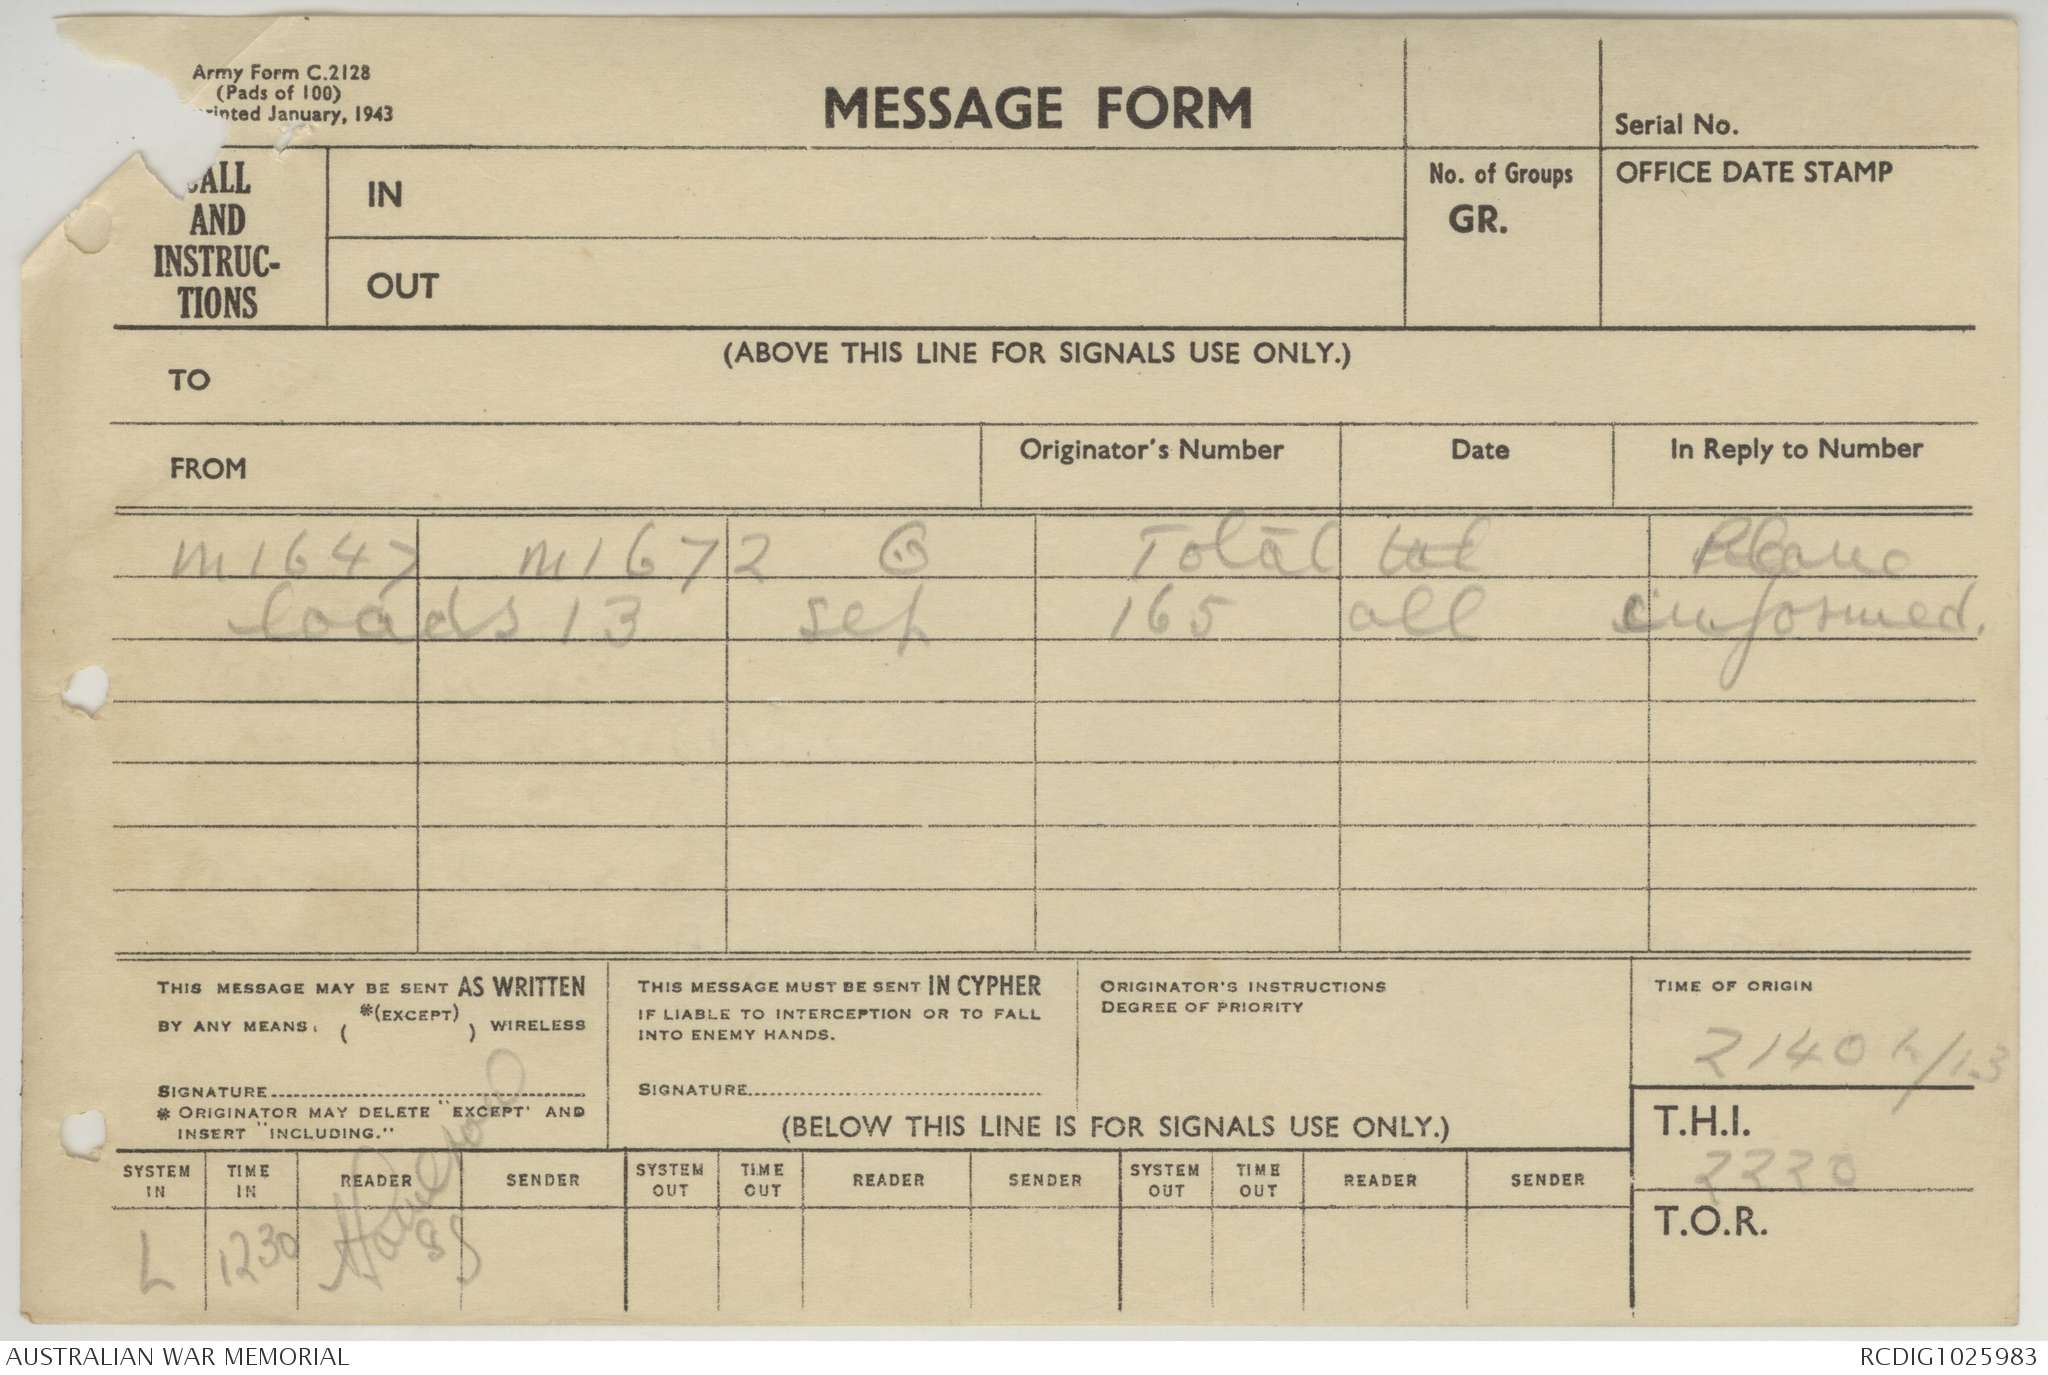 Army Form C.2128
(Pads of 100)
rinted January, 1943
MESSAGE FORM
Serial No.
CALL
AND
INSTRUC-
TIONS
IN
OUT
No. of Groups
GR.
OFFICE DATE STAMP
(ABOVE THIS LINE FOR SIGNALS USE ONLY.)
TO
FROM
Originator's Number
Date
In Reply to Number
M1647 M1672 Total Plane
loads 13 Sep 165 all informed.
THIS MESSAGE MAY BE SENT AS WRITTEN
BY ANY MEANS. ( *(EXCEPT) ) WIRELESS
SIGNATURE
* ORIGINATOR MAY DELETE "EXCEPT' AND
INSERT "INCLUDING."
THIS MESSAGE MUST BE SENT IN CYPHER
IF LIABLE TO INTERCEPTION OR TO FALL
INTO ENEMY HANDS.
SIGNATURE
ORIGINATOR'S INSTRUCTIONS
DEGREE OF PRIORITY
TIME OF ORIGIN
2140 K/13
(BELOW THIS LINE IS FOR SIGNALS USE ONLY.)
T.H.I.
2220
T.O.R.
SYSTEM IN TIME IN READER SENDER SYSTEM OUT TIME OUT READER SENDER SYSTEM OUT TIME OUT READER SENDER
L 1230
AUSTRALIAN WAR MEMORIAL
RCDIG1025983